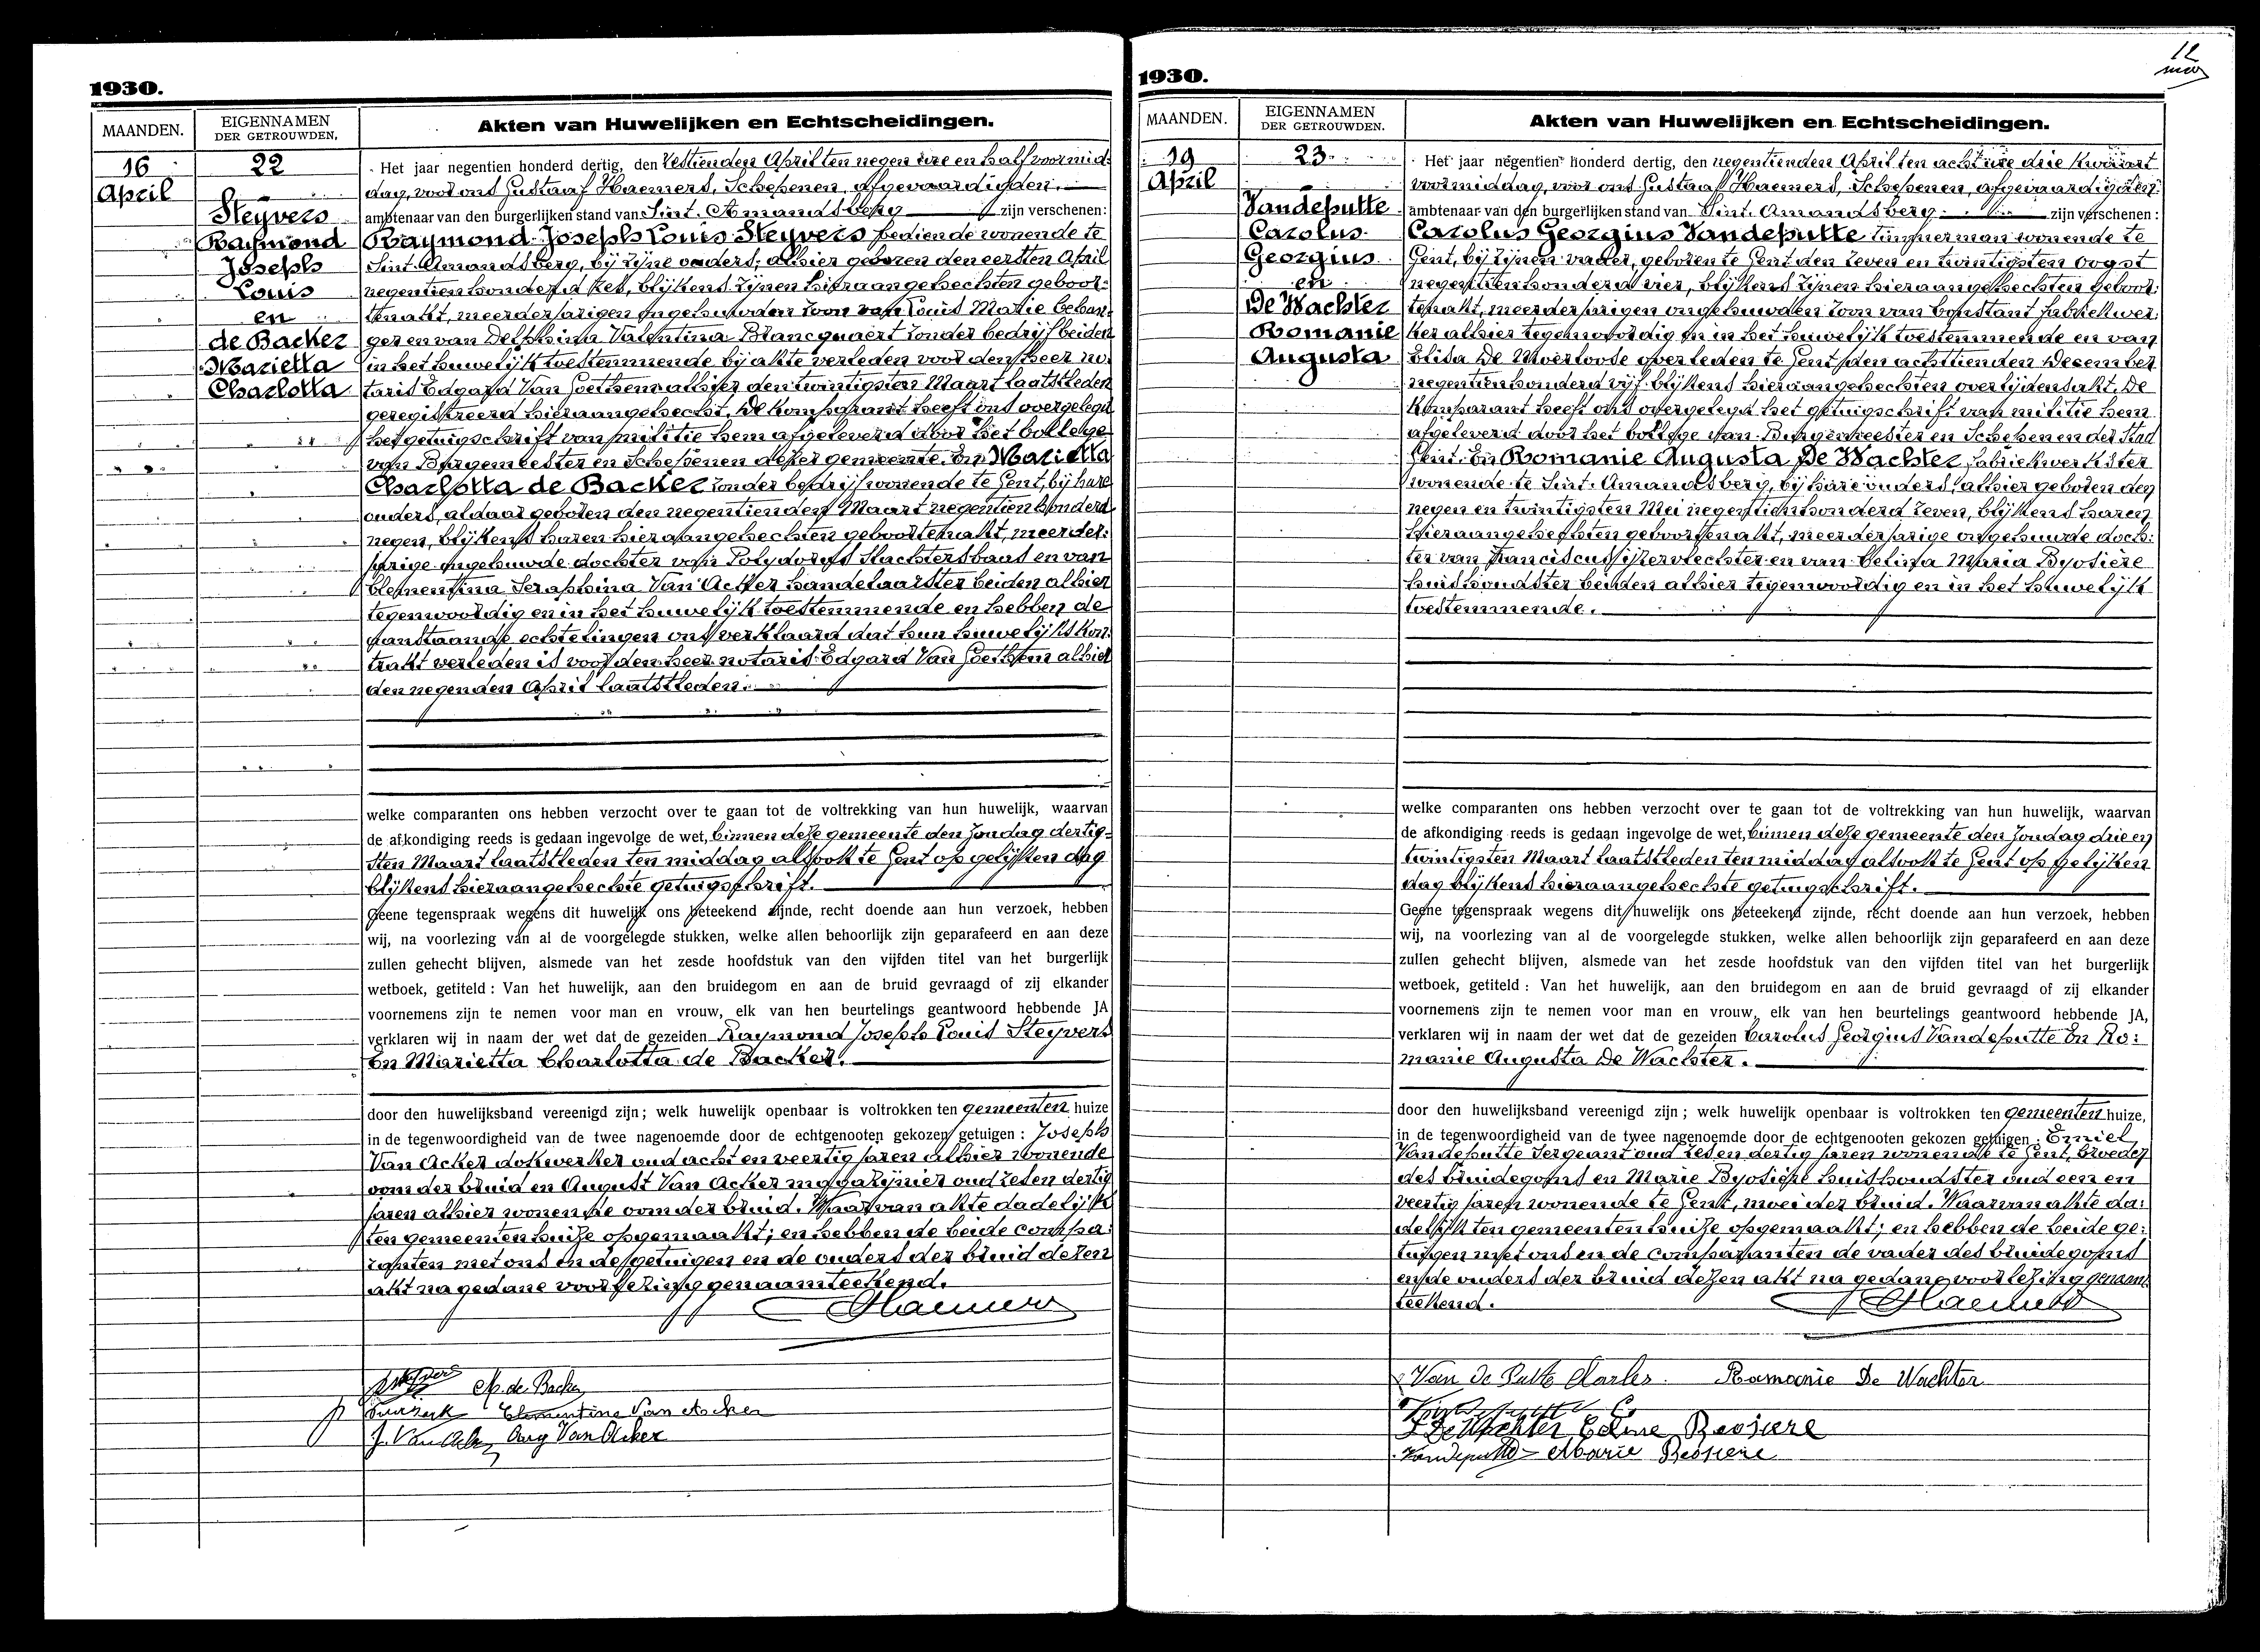 1930.
MAANDEN.
EIGENNAMEN
DER GETROUWDEN.
Akten van Huwelijken en Echtscheidingen.
16
April
22
Steyvers
Raymond
Joseph
Louis
en
de Backer
Marietta
Charlotta
Het jaar negentien honderd dertig, den zestienden April ten negen ure en half voormid-
dag, voor ons Gustaaf Haemers, Schepenen, afgevaardigden
ambtenaar van den burgerlijken stand van Sint. Amandsberg zijn verschenen:
Raymond Joseph Louis Steyvers bediende wonende te
Sint. Amandsberg, bij zijne ouders, alhier geboren den eersten April
negentienhonderd zes, blijkens zijnen hieraangehechten geboor-
tenakt, meerderjarigen ongehuwden zoon van Louis Marie
en van Delphina Valentina Blancquaert zonder bedrijf beiden
in het huwelijk toestemmende bij akte verleden voor den heer no-
taris Edgard Van Goethem alhier den twintigsten Maart laatstleden
geregistreerd hieraangehecht. De komparant heeft ons overgelegd
het getuigschrift van militie hem afgeleverd door het Collége
van Burgemeester en Schepenen dezer gemeente. En Marietta
Charlotta de Backer zonder bedrijf wonende te Gent, bij hare
ouders, aldaar geboren den negentienden Maart negentienhonderd
negen, blijkens haren hieraangehechten geboortenakt, meerder-
jarige ongehuwde dochter van Polydorus en van
Clementina Seraphina Van Acker handelaarster beiden alhier
tegenwoordig en in het huwelijk toestemmende en hebben de
aanstaande echtelingen ons verklaard dat hun huwelijkskon-
trakt verleden is voor den heer notaris Edgard Van Goethem alhier
den negenden April laatstleden.
welke comparanten ons hebben verzocht over te gaan tot de voltrekking van hun huwelijk, waarvan
de afkondiging reeds is gedaan ingevolge de wet, binnen deze gemeente den Zondag dertig-
sten Maart laatstleden ten middag alsook te Gent op gelijken dag
blijkens hieraangehechte getuigschrift.
Geene tegenspraak wegens dit huwelijk ons beteekend zijnde, recht doende aan hun verzoek, hebben
wij, na voorlezing van al de voorgelegde stukken, welke allen behoorlijk zijn geparafeerd en aan deze
zullen gehecht blijven, alsmede van het zesde hoofdstuk van den vijfden titel van het burgerlijk
wetboek, getiteld : Van het huwelijk, aan den bruidegom en aan de bruid gevraagd of zij elkander
voornemens zijn te nemen voor man en vrouw, elk van hen beurtelings geantwoord hebbende JA
verklaren wij in naam der wet dat de gezeiden Raymond Joseph Louis Steyvers
En Marietta Charlotta de Backer.
door den huwelijksband vereenigd zijn; welk huwelijk openbaar is voltrokken ten gemeenten huize
in de tegenwoordigheid van de twee nagenoemde door de echtgenooten gekozen getuigen : Joseph
Van Acker dokwerker oud acht en veertig jaren alhier wonende
oom der bruid en August Van Acker magazijnier oud zes en dertig
jaren alhier wonende oom der bruid. Waarvan akte dadelijk
ten gemeentenhuize opgemaakt; en hebben de beide compa-
ranten met ons en de getuigen en de ouders der bruid dezen
akt na gedane voorlezing genaamteekend.
GHaemers
M. de Backer
Clementina Van Acker
J. Van Acker Aug Van Acker
12
1930.
MAANDEN.
EIGENNAMEN
DER GETROUWDEN.
Akten van Huwelijken en Echtscheidingen.
19
April
23
Vandeputte
Carolus
Georgius
en
De Wachter
Romanie
Augusta
Het jaar negentien honderd dertig, den negentienden April ten acht ure drie kwaart
voormiddag, voor ons Gustaaf Haemers, Schepenen, afgevaardigden
ambtenaar van den burgerlijken stand van Sint. Amandsberg zijn verschenen :
Carolus Georgius Vandeputte timmerman wonende te
Gent, bij zijnen vader, geboren te Gent den zeven en twintigsten Oogst
negentienhonderd vier, blijkens zijnen hieraangehechten geboor-
tenakt, meerderjarigen ongehuwden zoon van Constant fabriekwer-
ker alhier tegenwoordig en in het huwelijk toestemmende en van
Elisa De Moerloose overleden te Gent den achttienden December
negentienhonderd vijf blijkens hieraangehechten overlijdensakt. De
komparant heeft ons overgelegd het getuigschrift van militie hem
afgeleverd door het Collége van Burgemeester en Schepenen der Stad
Gent. En Romanie Augusta De Wachter fabriekwerkster
wonende te Sint. Amandsberg, bij hare ouders, alhier geboren den
negen en twintigsten Mei negentienhonderd zeven, blijkens haren
hieraangehechten geboortenakt, meerderjarige ongehuwde doch-
ter van Franciscus ijzervlechter en van Celina Maria Byosière
huishoudster beiden alhier tegenwoordig en in het huwelijk
toestemmende.
welke comparanten ons hebben verzocht over te gaan tot de voltrekking van hun huwelijk, waarvan
de afkondiging reeds is gedaan ingevolge de wet, binnen deze gemeente den Zondag drie en
twintigsten Maart laatstleden ten middag alsook te Gent op gelijken
dag blijkens hieraangehechte getuigschrift.
Geene tegenspraak wegens dit huwelijk ons beteekend zijnde, recht doende aan hun verzoek, hebben
wij, na voorlezing van al de voorgelegde stukken, welke allen behoorlijk zijn geparafeerd en aan deze
zullen gehecht blijven, alsmede van het zesde hoofdstuk van den vijfden titel van het burgerlijk
wetboek, getiteld : Van het huwelijk, aan den bruidegom en aan de bruid gevraagd of zij elkander
voornemens zijn te nemen voor man en vrouw, elk van hen beurtelings geantwoord hebbende JA,
verklaren wij in naam der wet dat de gezeiden Carolus Georgius Vandeputte En Ro-
manie Augusta De Wachter.
door den huwelijksband vereenigd zijn ; welk huwelijk openbaar is voltrokken ten gemeenten huize,
in de tegenwoordigheid van de twee nagenoemde door de echtgenooten gekozen getuigen : Emiel
Vandeputte Sergeant oud zes en dertig jaren wonende te Gent, broeder
des bruidegoms en Marie Byosière huishoudster oud een en
veertig jaren wonende te Gent, moei der bruid. Waarvan akte da-
delijk ten gemeentenhuize opgemaakt; en hebben de beide ge-
tuigen met ons en de comparanten de vader des bruidegoms
en de ouders der bruid dezen akt na gedane voorlezing genaam-
teekend.
GHaemers
Van De Putte Charles. Romanie De Wachter
F De Wachter Celine Besiere
Vandeputte Marie Besiere